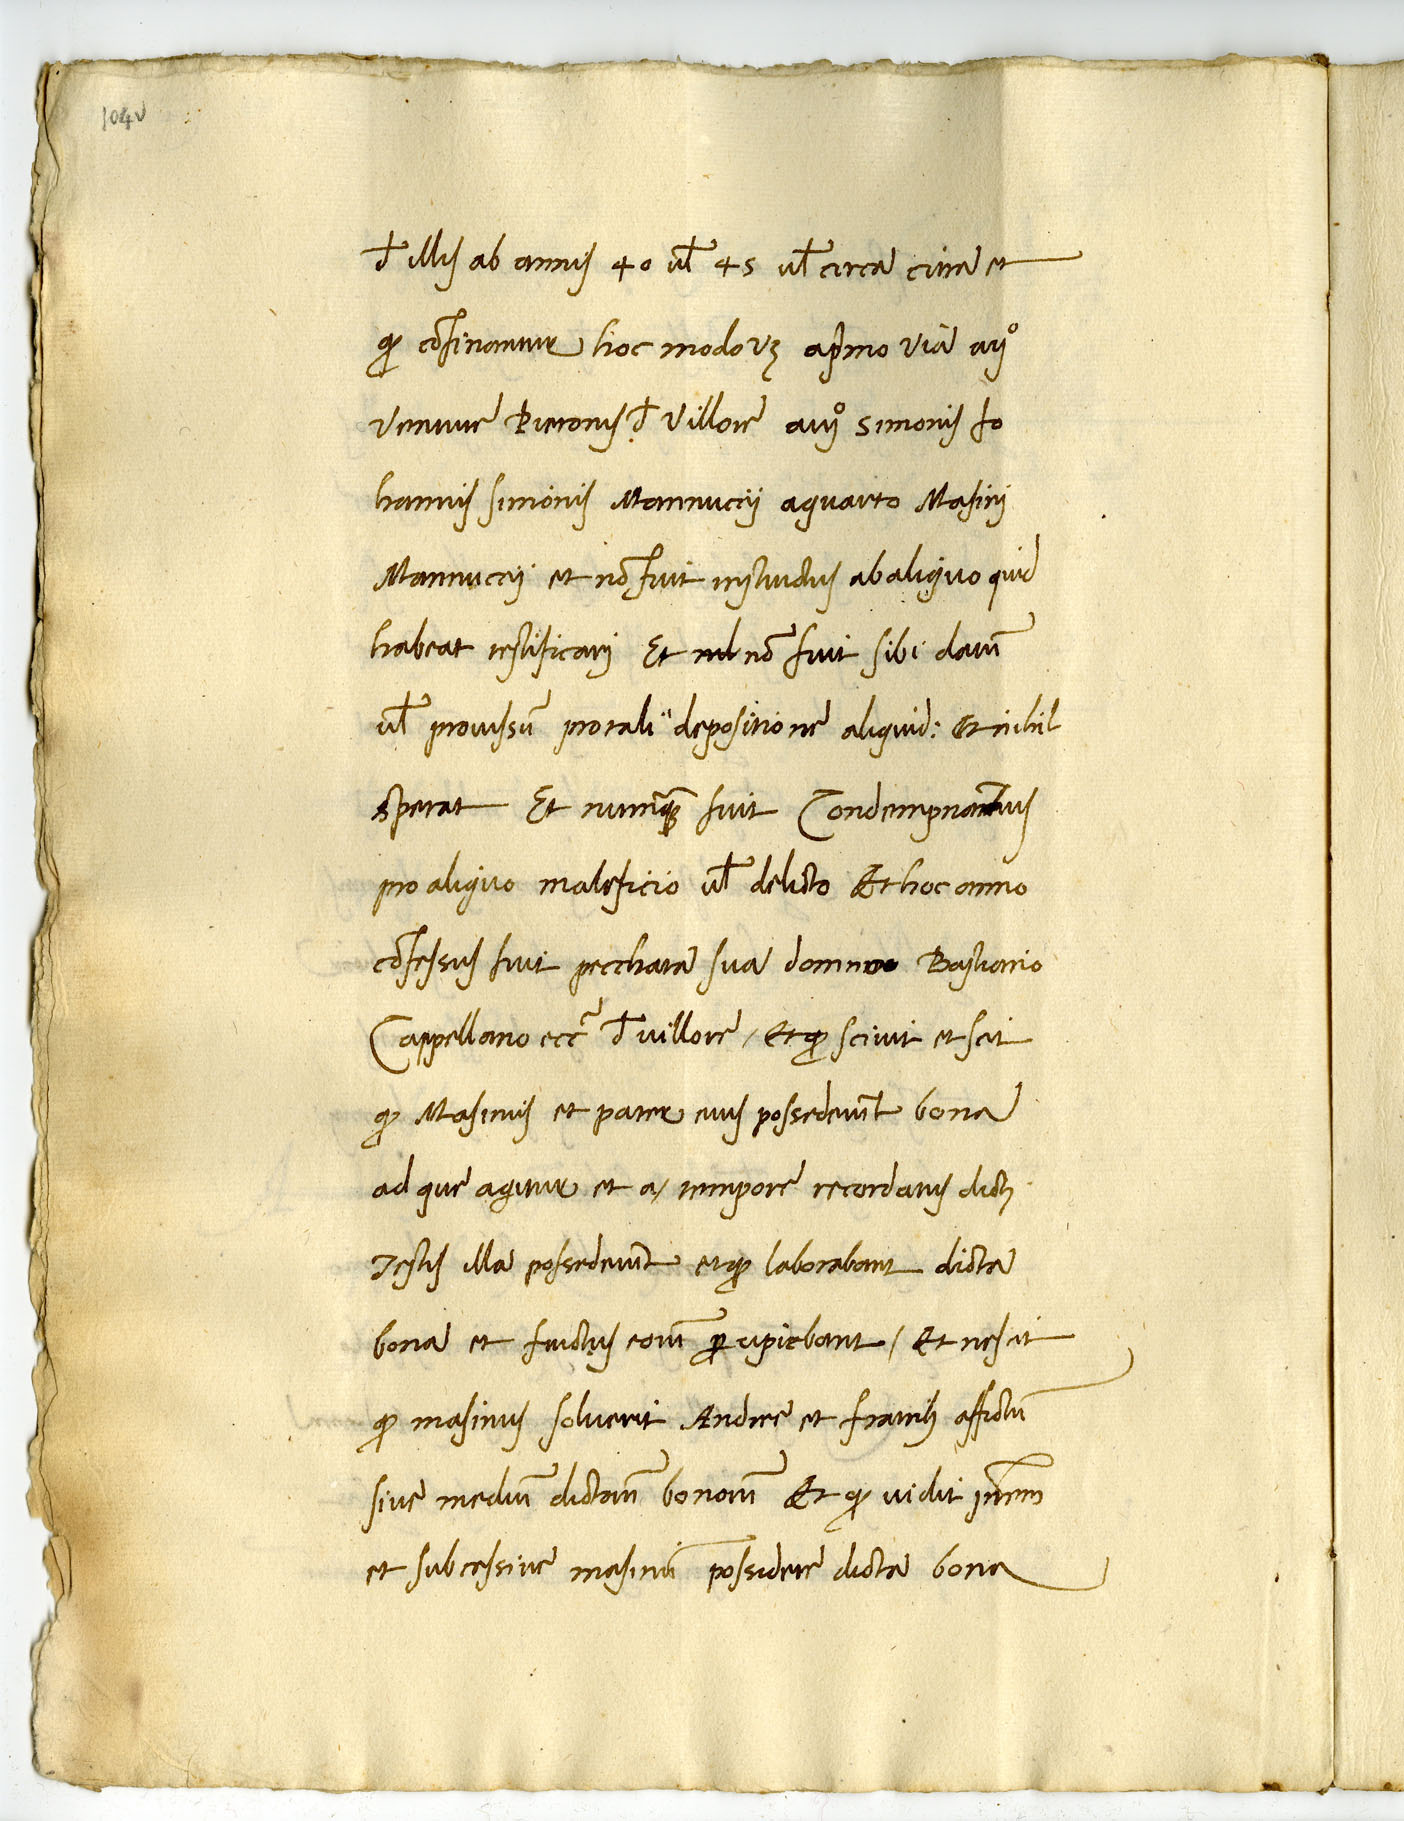 104v
d illis ab annis 40 ul 45 ul circa citra et
q cōfinantur hoc modo vz a pmo via a ijº
Venture Pieronis d Villore a iijº Simonis Jo
hannis simonis Mannuccij a quarto Masinj
Mannuccij et nō fuit instructus ab aliquo quid
habeat testificarj Et nl nō fuit sibi datū
ul promissū pro tali depositione aliquid: Et nihil
sperat Et numq̄ fuit Condempnatus
pro aliquo maleficio ul delicto Et hoc anno
cōfessus fuit pecchata sua domno Bastiano
Cappellano ecc̄ d villore / Et q scivit et scit
q Masinus et pater eius possederūt bona
ad que agitur et a / tempore recordatus dictj
Testis illa possederūt et q laborabant dicta
bona et fructus eorū p cipiebant / Et nescit
q masinus solverit Andree et fratrib affictū
sive mediū dictorū bonorū Et q vidit patrem
et subcessive masinū possidere dicta bona